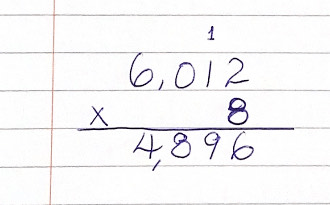 1
6,012
x 8
4,896